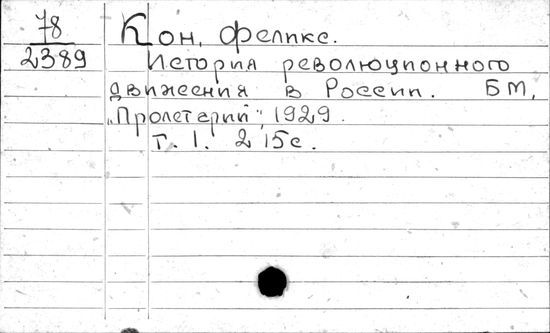 78
2389
Кон, Феликс.
История революционного
движения в России. БМ,
„Пролетарий", 1929.
Т. 1. 215с.